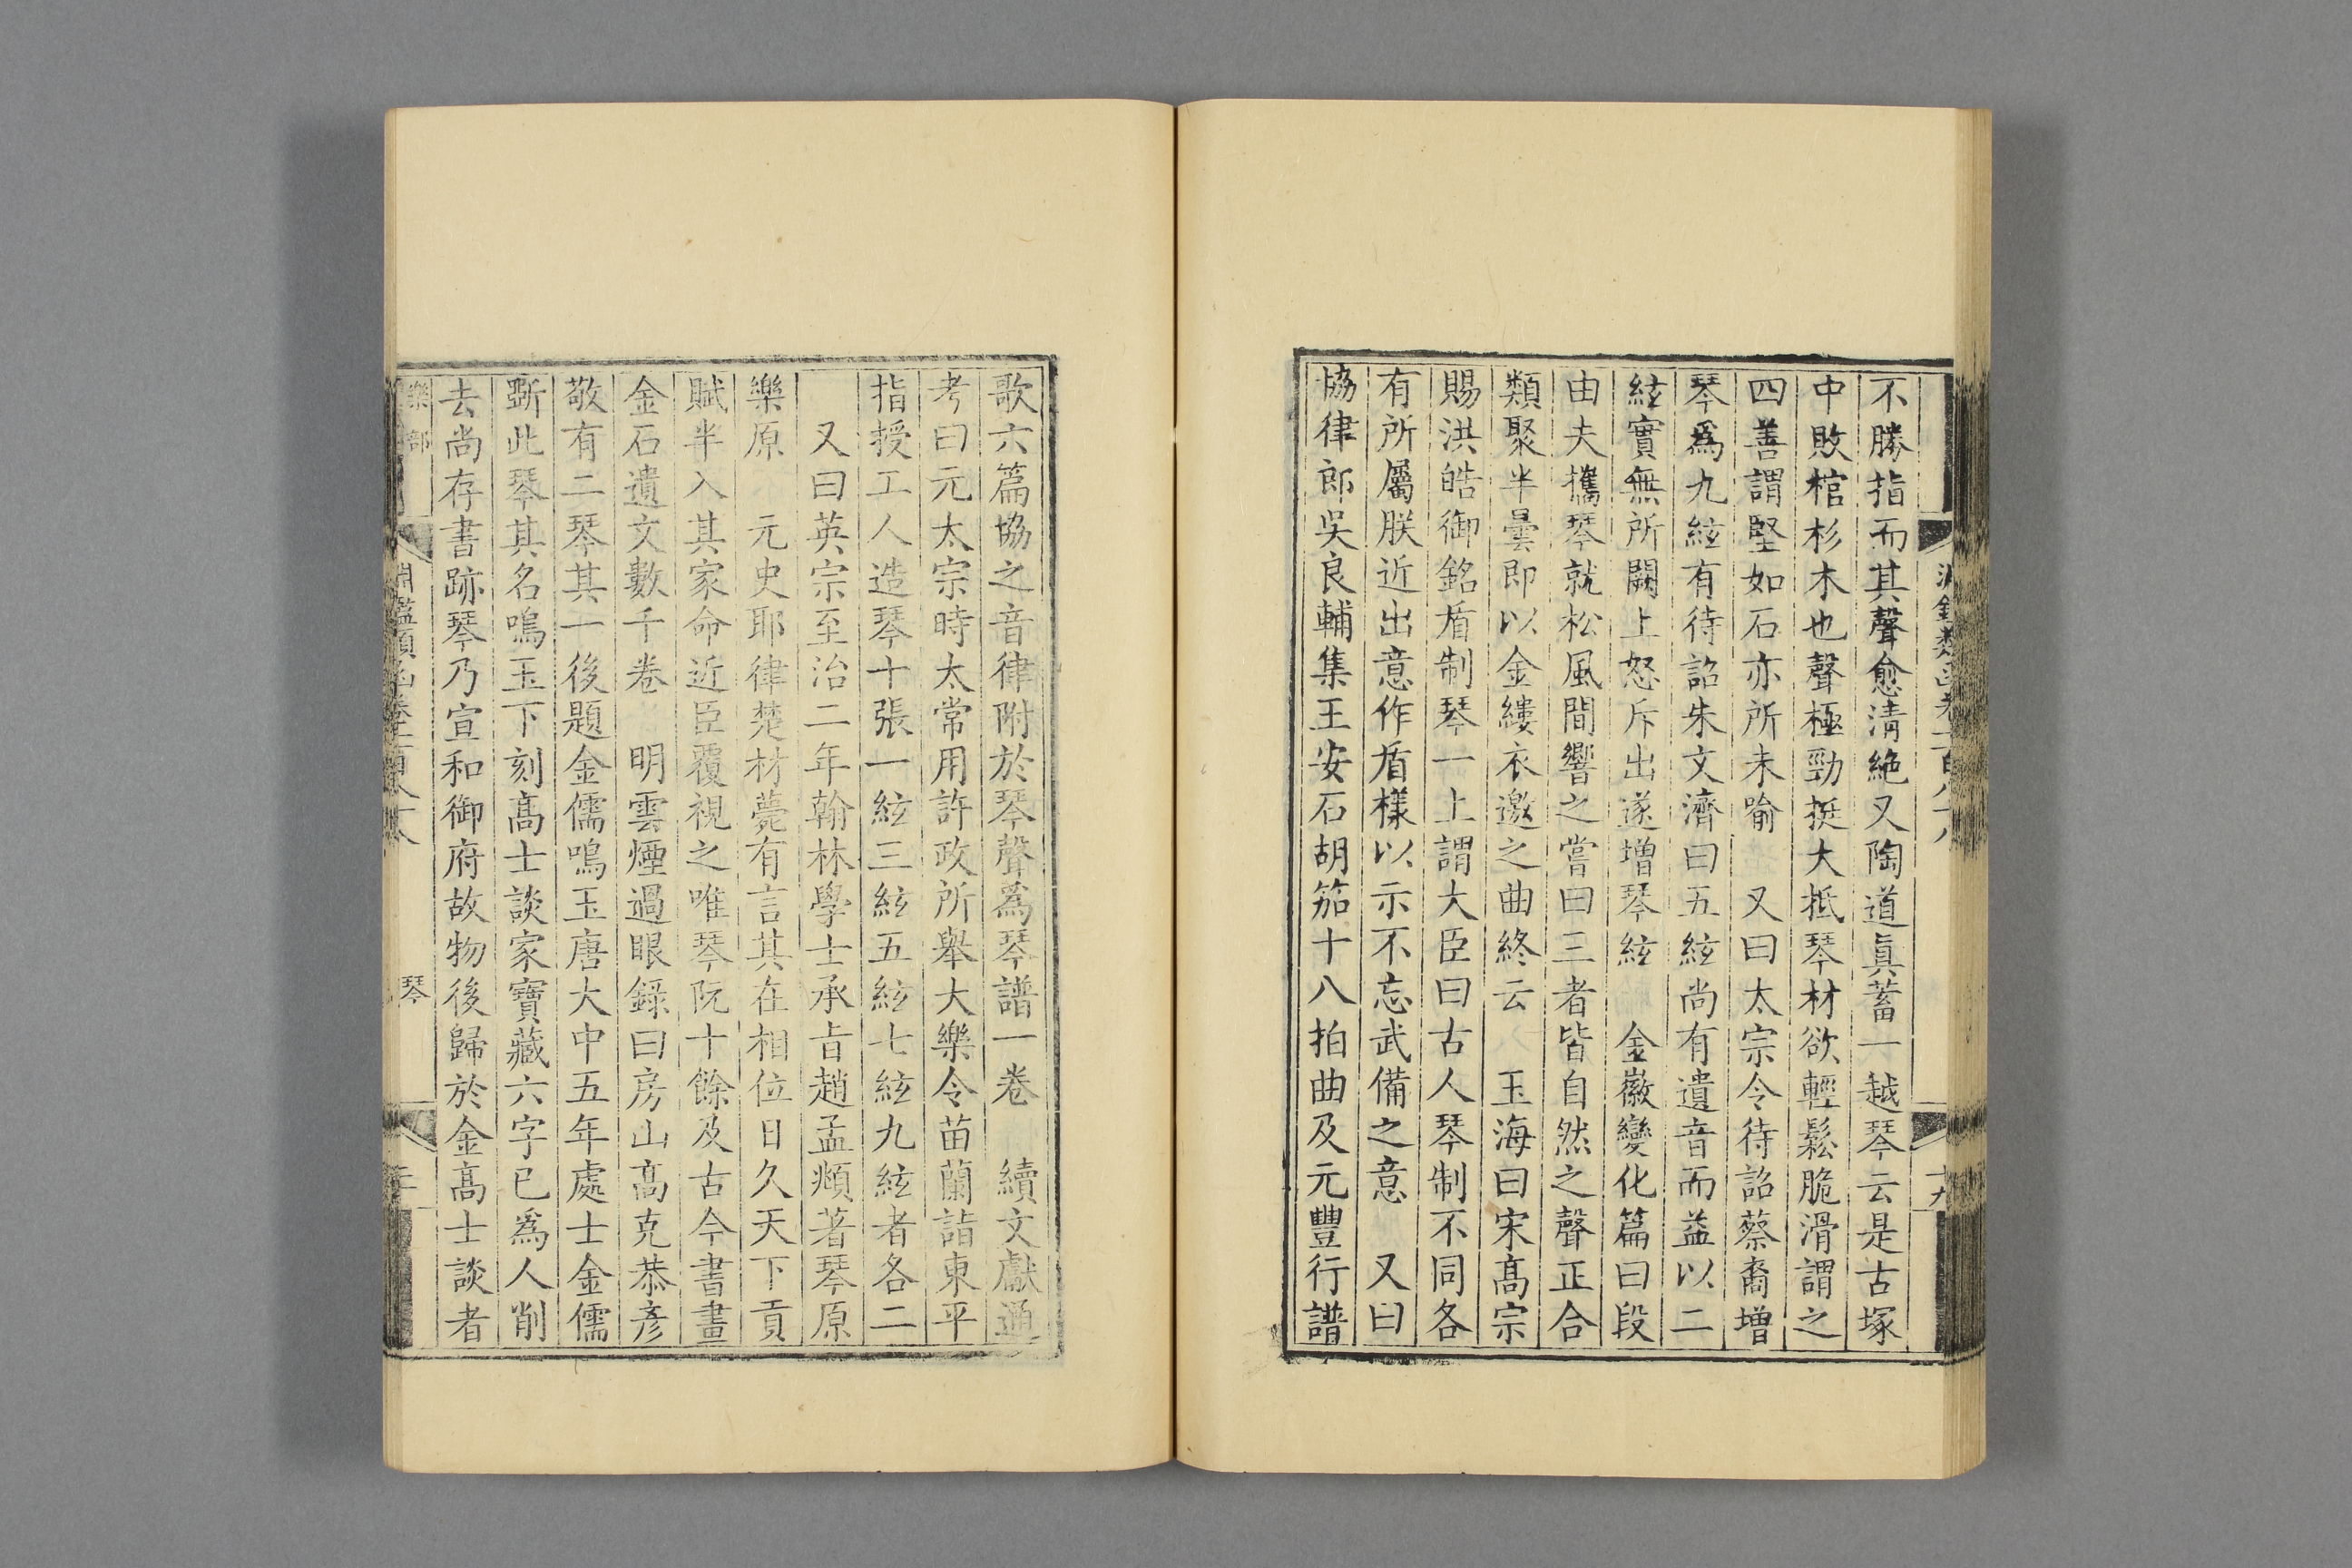 不勝指而其聲愈清絶又陶道眞蓄一越琴云是古塚
中敗棺杉木也聲極勁挺大抵琴材欲輕鬆脆滑謂之
四善謂堅如石亦所未喻　又曰太宗令待詔蔡裔增
琴爲九絃有待詔朱文濟曰五絃尚有遺音而益以二
絃實無所闕上怒斥出遂增琴絃　金徽變化篇曰段
由夫攜琴就松風間響之嘗曰三者皆自然之聲正合
類聚半曇即以金縷衣邀之曲終云　玉海曰宋髙宗
賜洪皓御銘盾制琴一上謂大臣曰古人琴制不同各
有所屬朕近出意作盾樣以示不忘武備之意　又曰
協律郎吳良輔集王安石胡笳十八拍曲及元豐行譜
歌六篇協之音律附於琴聲爲琴譜一卷　續文獻通
考曰元太宗時太常用許政所舉大樂令苗蘭詣東平
指授工人造琴十張一絃三絃五絃七絃九絃者各二
又曰英宗至治二年翰林學士承旨趙孟頫著琴原
樂原　元史耶律楚材薨有言其在相位日久天下貢
賦半入其家命近臣覆視之唯琴阮十餘及古今書畫
金石遺文數千卷　明雲煙過眼錄曰房山髙克恭彥
敬有二琴其一後題金儒鳴玉唐大中五年處士金儒
斲此琴其名鳴玉下刻髙士談家寶藏六字已爲人削
去尚存書跡琴乃宣和御府故物後歸於金髙士談者
樂部
琴